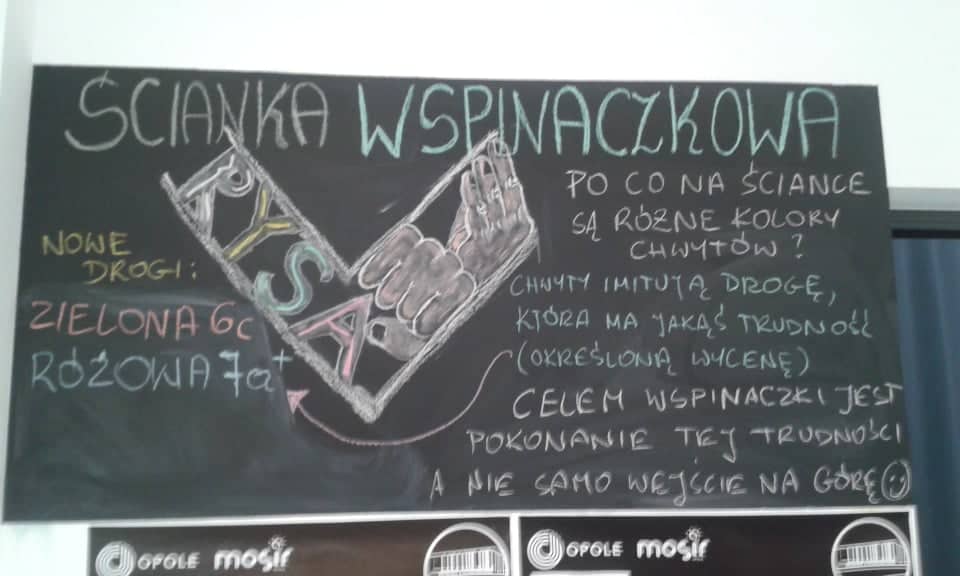 ŚCIANKA WSPINACZKOWA
RYSA
NOWE
DROGI:
ZIELONA 6c
RÓŻOWA 7a+
PO CO NA ŚCIANCE
SĄ RÓŻNE KOLORY
CHWYTÓW?
CHWYTY IMITUJĄ DROGĘ,
KTÓRA MA JAKĄŚ TRUDNOŚĆ
(OKREŚLONĄ WYCENĘ)
CELEM WSPINACZKI JEST
POKONANIE TEJ TRUDNOŚCI
A NIE SAMO WEJŚCIE NA GÓRĘ
OPOLE mosir
OPOLE mosir